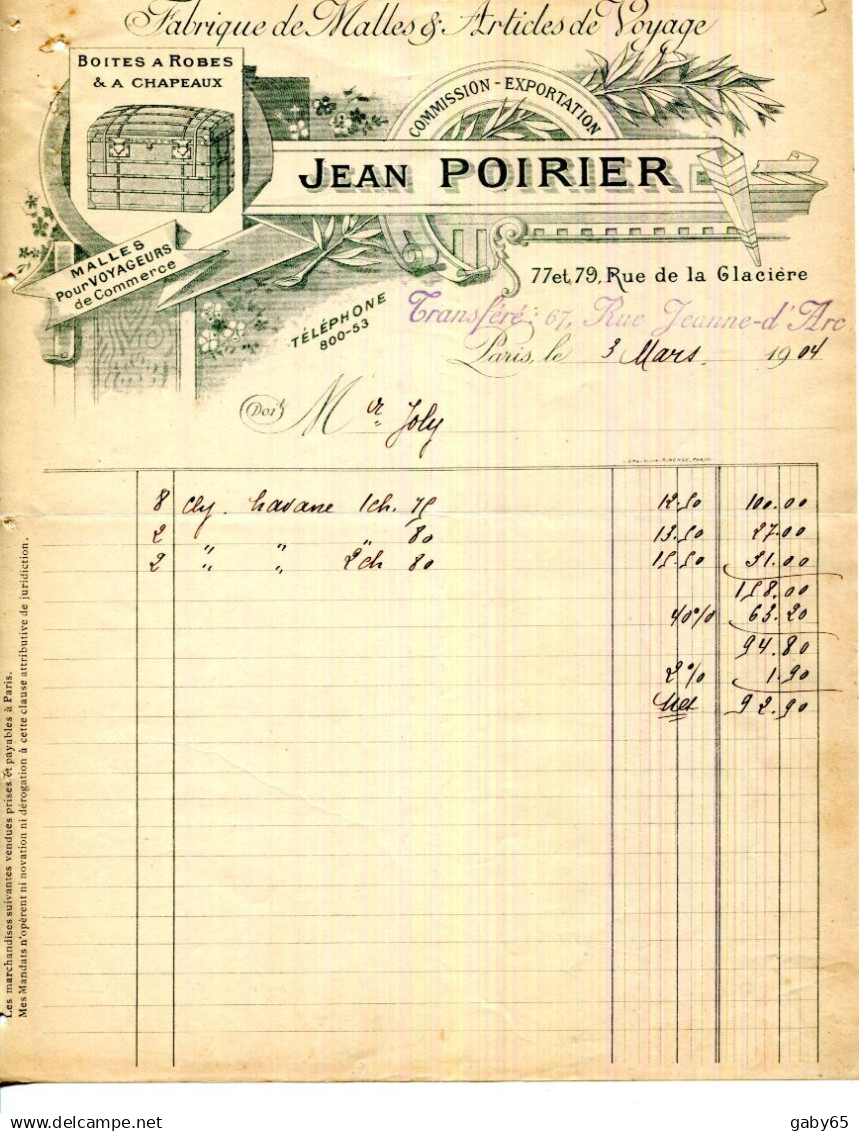 Fabrique de Malles & Articles de Voyage
BOITES A ROBES
& A CHAPEAUX
COMMISSION - EXPORTATION
JEAN POIRIER
MALLES
Pour VOYAGEURS
de Commerce
77 et 79, Rue de la Glacière
TÉLÉPHONE
800-53
Transféré: 67, Rue Jeanne-d'Arc
Paris, le 3 Mars 1904
Doit Mr Joly
8 Cly. havane 1ch. 75 12.50 100.00
2 " " " 80 13.50 27.00
2 " " 2ch 80 15.50 31.00
158.00
40% 63.20
94.80
2% 1.90
Net 92.90
Les marchandises suivantes vendues prises et payables à Paris.
Mes Mandats n'opèrent ni novation ni dérogation à cette clause attributive de juridiction.
delcampe.net
gaby65